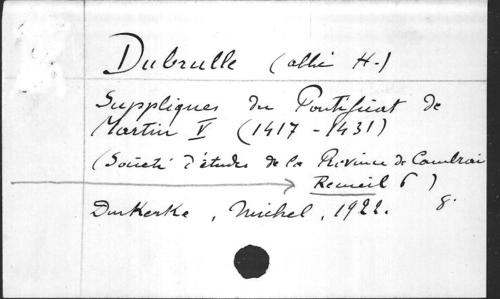 Dubrulle (abbé H.)
Suppliques du Pontificat de
Martin V (1417-1431)
(Société d'études de la Province de Cambrai
Recueil 6)
Dunkerke, Michel, 1922. 8.